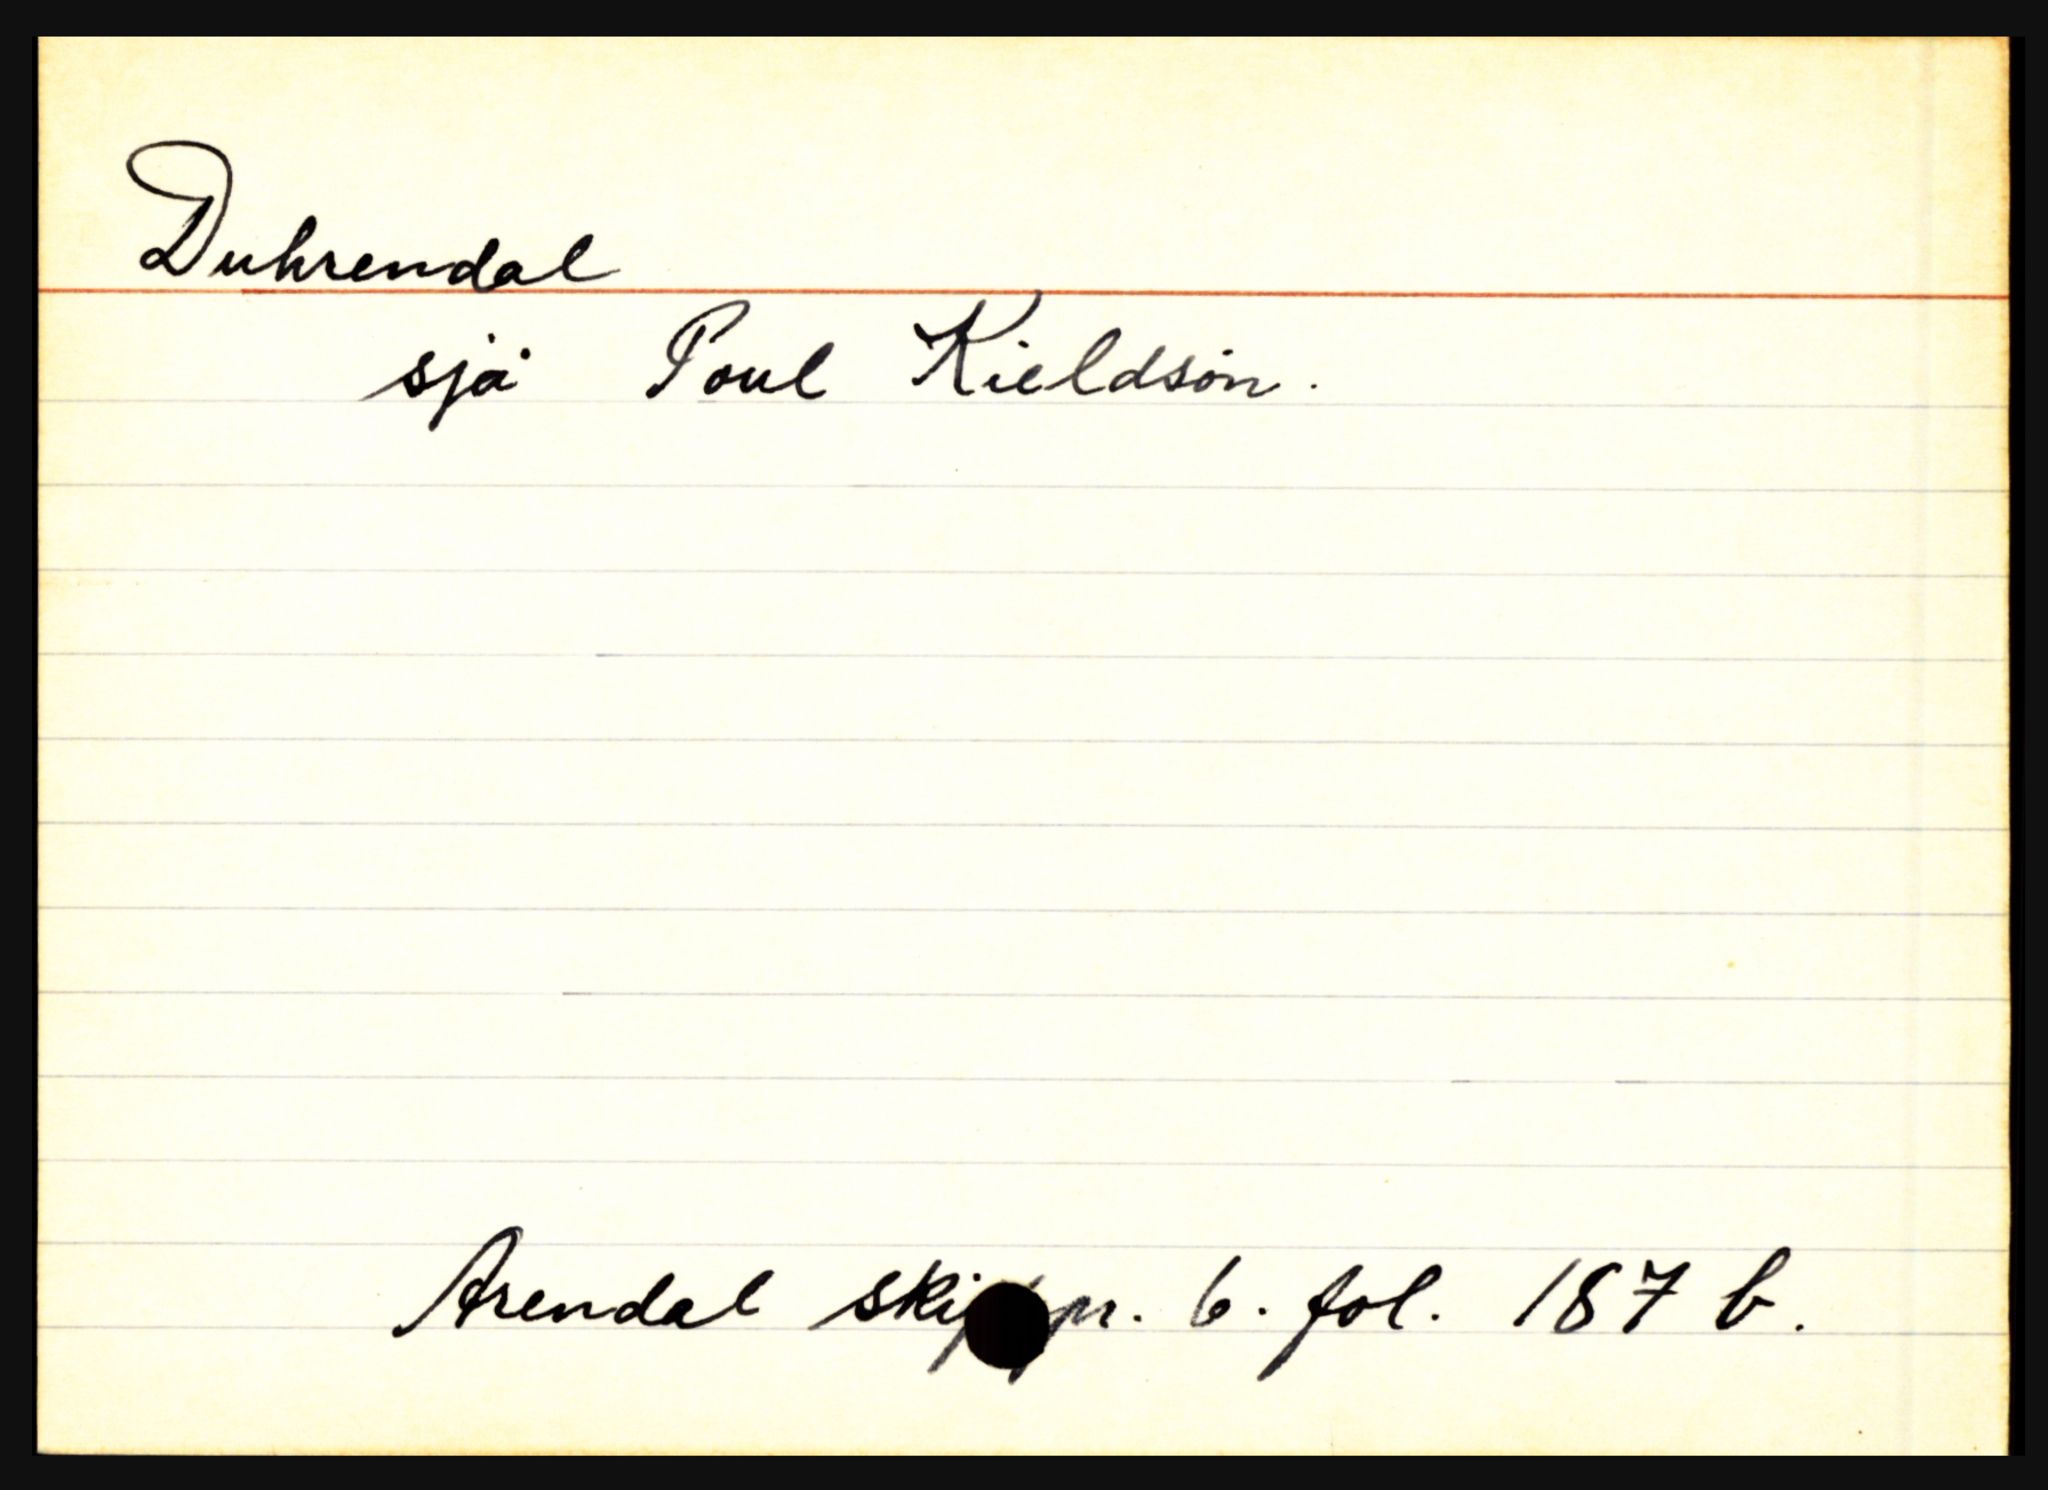 Duhrendal
sjå Poul Kieldsøn.
Arendal skifpr. 6. fol. 187 b.